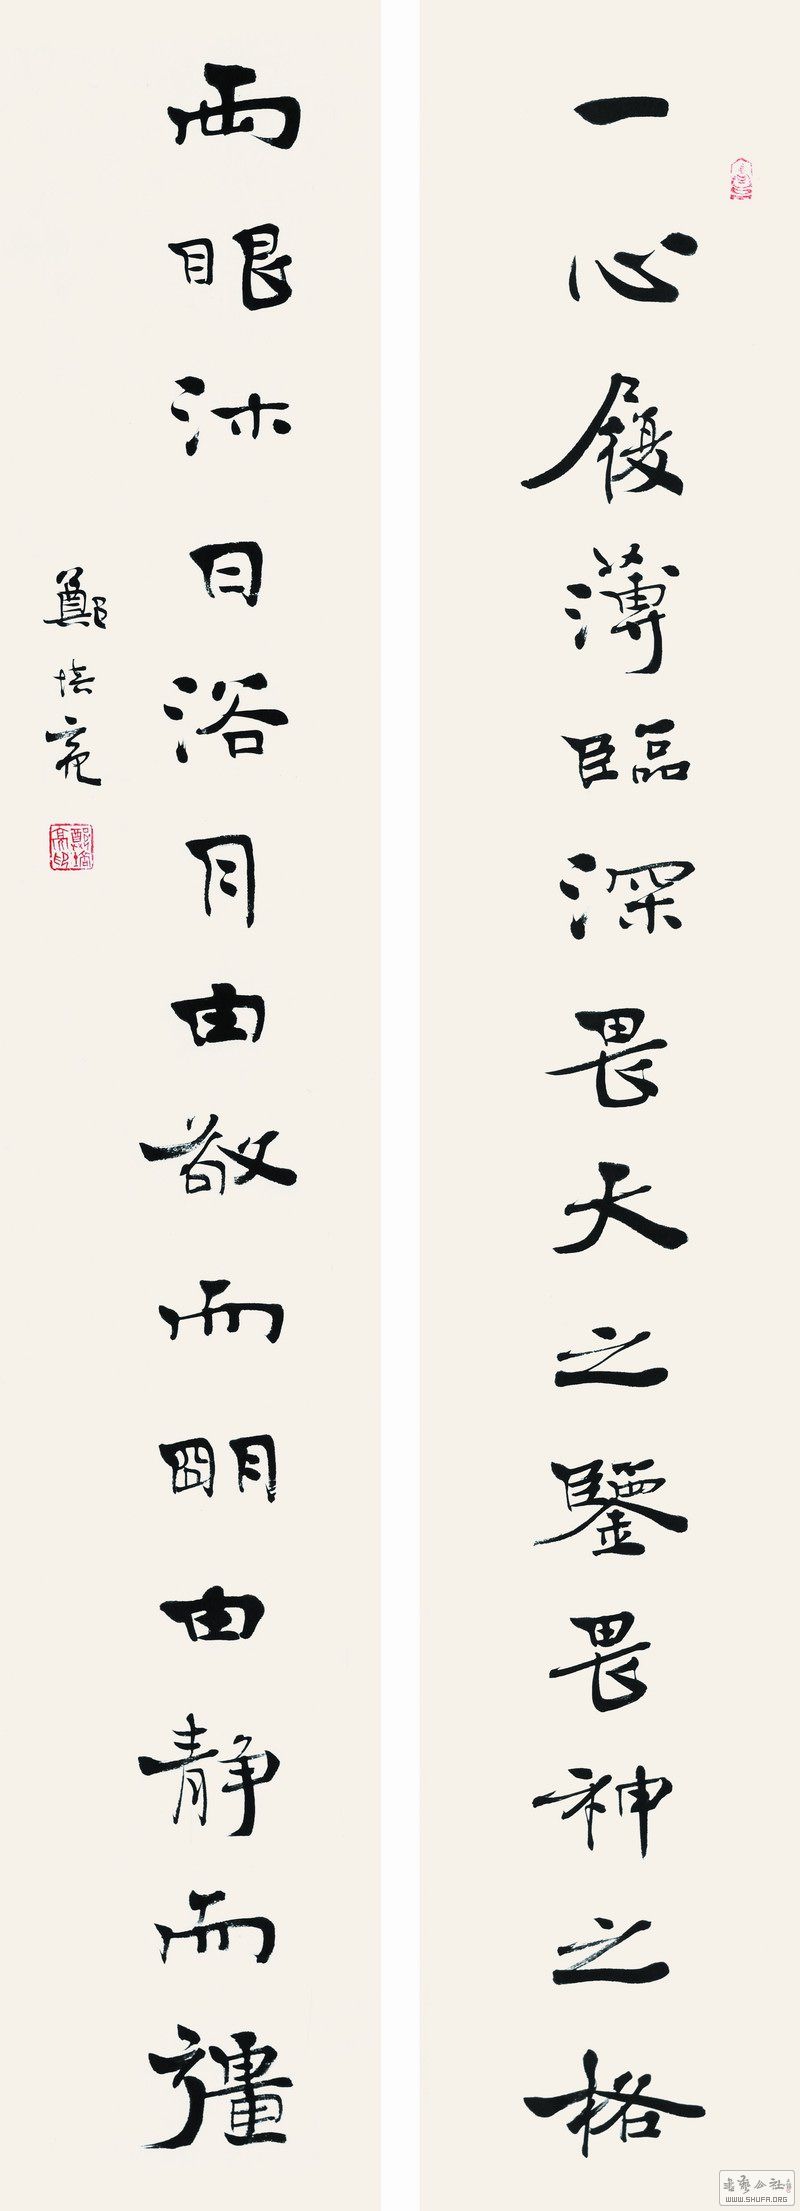 一心履薄臨深畏天之鑒畏神之格
兩眼沐日浴月由敬而明由静而彊
鄭培亮
鄭培亮印
WWW.SHUFA.ORG